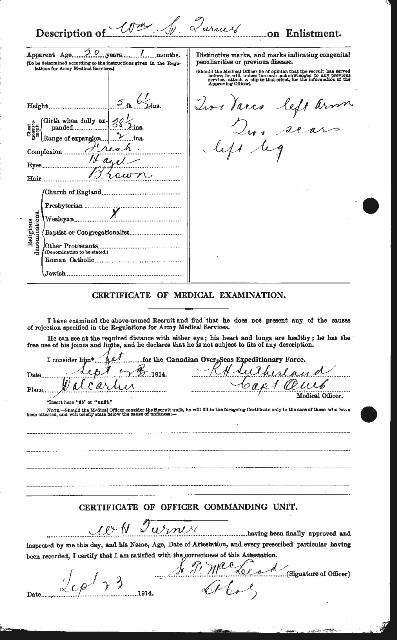 Description of Wm H. Turner on Enlistment.
Apparent Age 22 years 1 months.
(To be determined according to the instructions given in the Regulations for Army Medical Services.)
Distinctive marks, and marks indicating congenital peculiarities or previous disease.
(Should the Medical Officer be of opinion that the recruit has served before, he will, unless the man acknowledges to any previous service, attach a slip to that effect, for the information of the Approving Officer).
Height 5 ft. 6½ ins.
Chest measurement
Girth when fully expanded 36½ ins.
Range of expansion 2 ins.
Complexion Fresh
Eyes Hazel
Hair Brown
Two Vacc left arm
Two scars
left leg
Religious denominations
Church of England
Presbyterian
Wesleyan X
Baptist or Congregationalist
Other Protestants
(Denomination to be stated.)
Roman Catholic
Jewish
CERTIFICATE OF MEDICAL EXAMINATION.
I have examined the above-named Recruit and find that he does not present any of the causes
of rejection specified in the Regulations for Army Medical Services.
He can see at the required distance with either eye; his heart and lungs are healthy; he has the
free use of his joints and limbs, and he declares that he is not subject to fits of any description.
I consider him* fit for the Canadian Over-Seas Expeditionary Force.
Date Sept 1914.
Place Valcartier
R H Sutherland
Capt
Medical Officer.
*Insert here "fit" or "unfit."
NOTE.—Should the Medical Officer consider the Recruit unfit, he will fill in the foregoing Certificate only in the case of those who have
been attested, and will briefly state below the cause of unfitness:—
CERTIFICATE OF OFFICER COMMANDING UNIT.
W H Turner having been finally approved and
inspected by me this day, and his Name, Age, Date of Attestation, and every prescribed particular having
been recorded, I certify that I am satisfied with the correctness of this Attestation.
MacLeod (Signature of Officer)
Lt Col
Date Sept 23 1914.